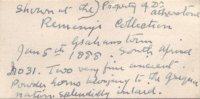 Shown at the Property of Dr Atherstone
Collection
Grahamstown
Jan 5th 1898. South Africa
Two very fine ancient
Powder horns belonging to the
nation splendidly inlaid.